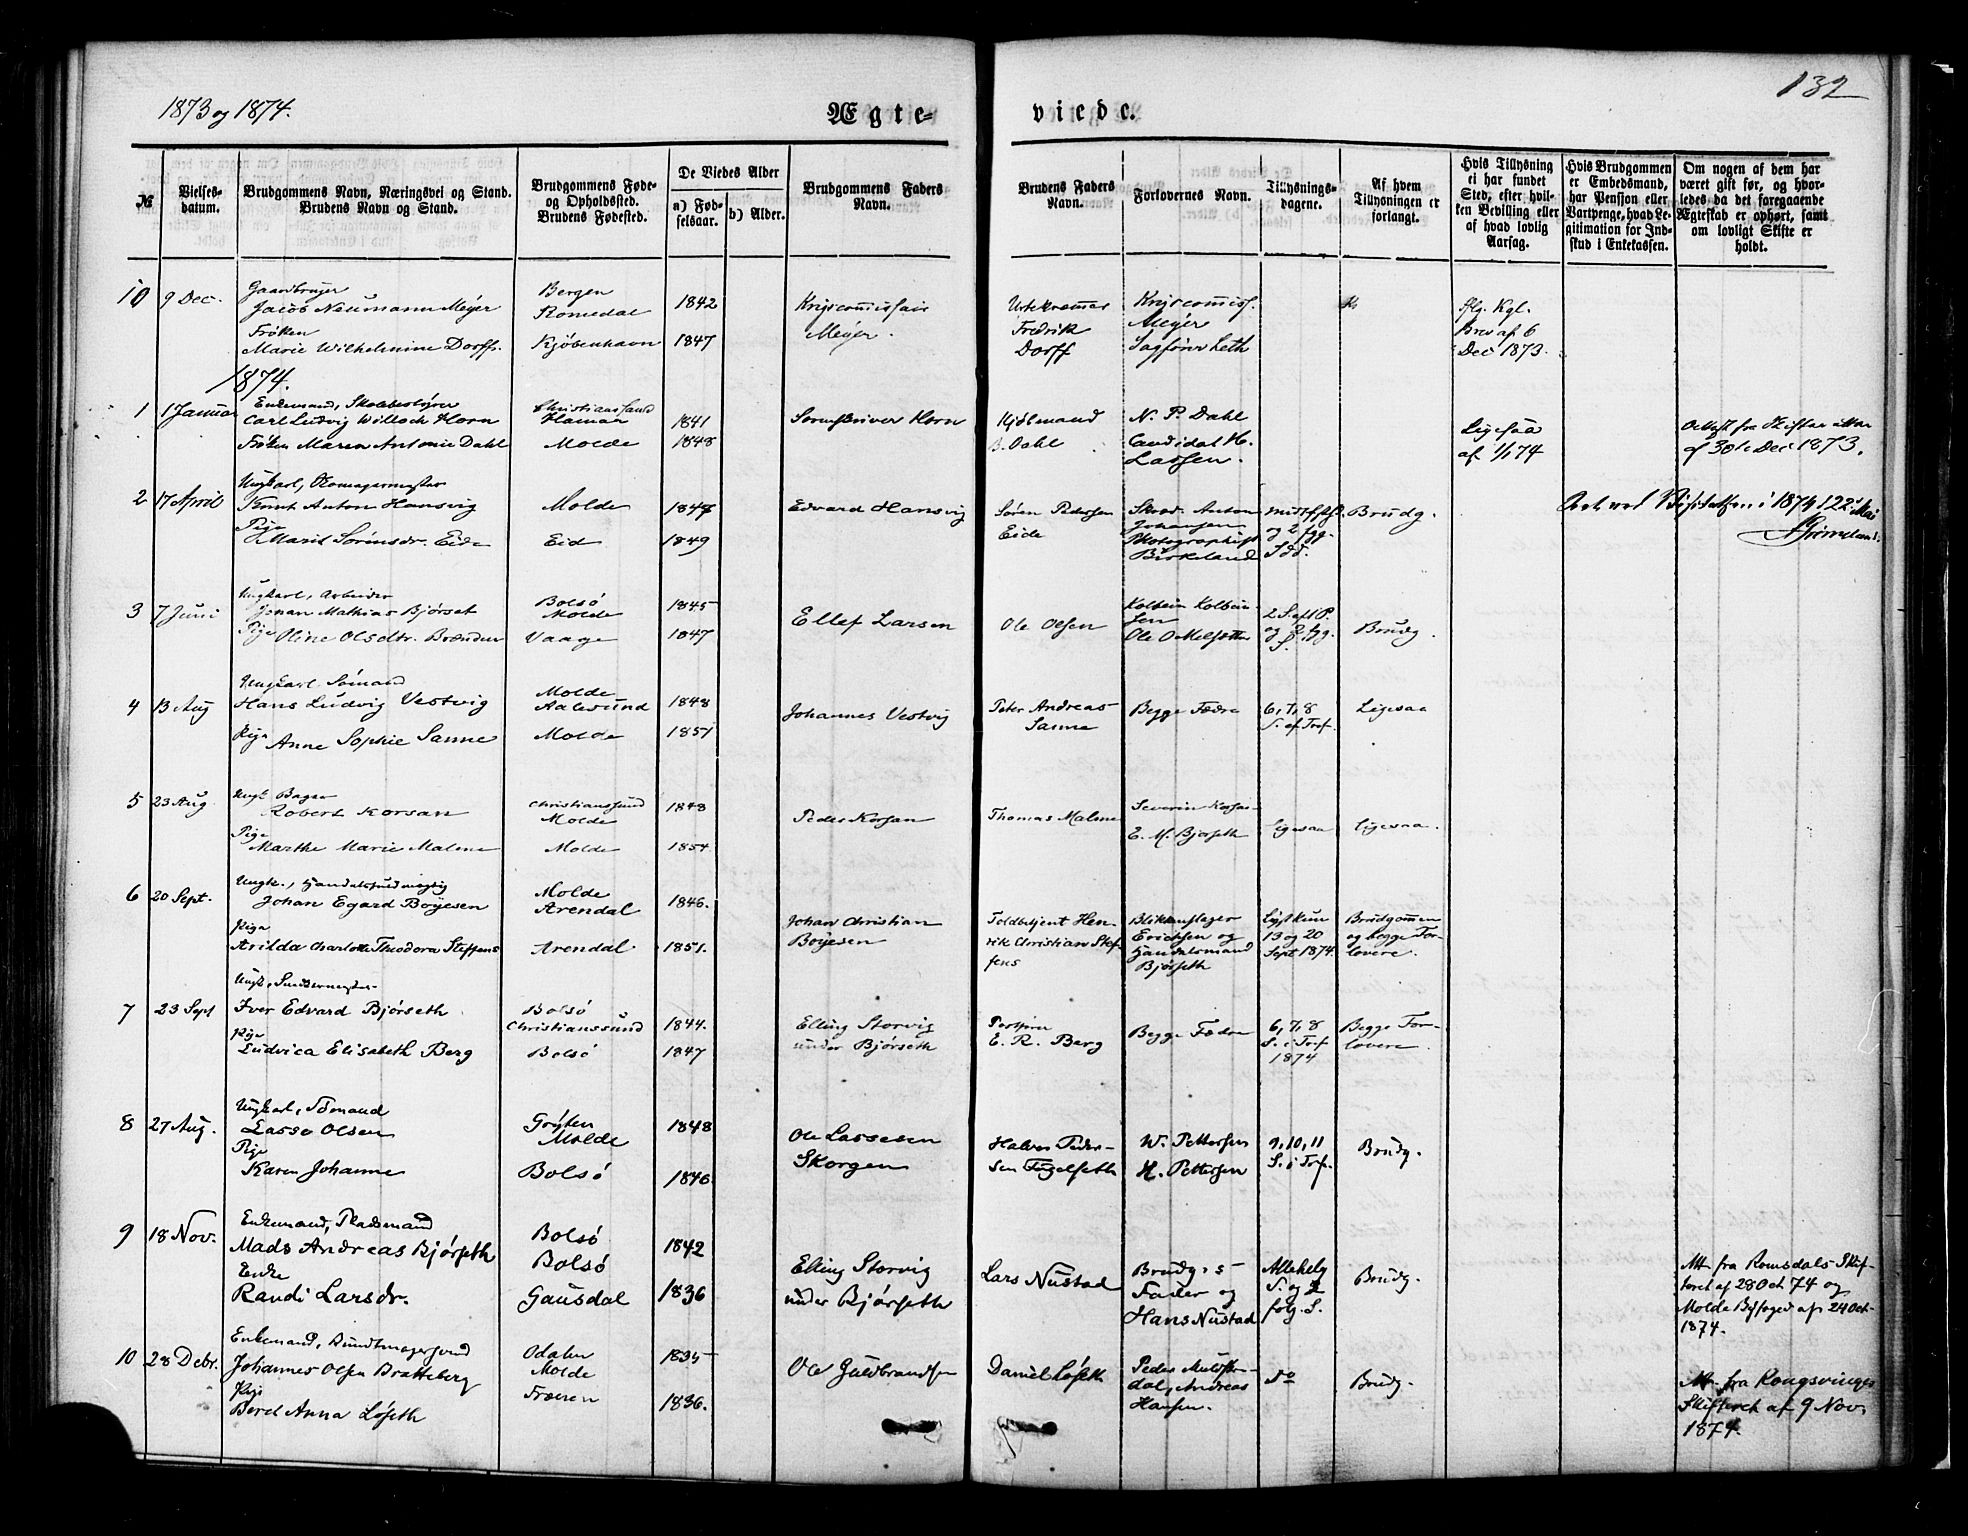 1873 og 1874.
Ægte-
viede.
132
No
Vielses-
datum.
Brudgommens Navn, Næringsvei og Stand.
Brudens Navn og Stand.
Brudgommens Føde-
og Opholdssted.
Brudens Fødested.
De Viedes Alder
a) Fød-
selsaar.
b) Alder.
Brudgommens Faders
Navn.
Brudens Faders
Navn.
Forlovernes Navn.
Tillysnings-
dagene.
Af hvem
Tillysningen er
forlangt.
Hvis Tillysning
ei har fundet
Sted, efter hvil-
ken Bevilling eller
af hvad lovlig
Aarsag.
Hvis Brudgommen
er Embedsmand,
har Pension eller
Vartpenge, hvad Le-
gitimation for Ind-
skud i Enkekassen.
Om nogen af dem har
været gift før, og hvor-
ledes da det foregaaende
Ægteskab er ophørt, samt
om lovligt Skifte er
holdt.
10
9 Dec.
Gaardbruger
Jacob Neumann Meyer
Frøken
Marie Wilhelmine Dorff.
Bergen
Romedal
Kjøbenhavn
1842
1847
Krigscommissair
Meyer.
Urtekræmer
Fredrik
Dorff
Krigscommiss.
Meyer
Sagfører Leth
flg. Kgl.
Brev af 6
Dec 1873.
1874.
1
1 Januar
Enkemand, Skolebestyrer
Carl Ludvig Willoch Horn
Frøken Maren Antonie Dahl
Christianssand
Hamar
Molde
1841
1848
Sorenskriver Horn
Kjøbmand
B. Dahl
N. P. Dahl
Candidat H.
Lassen.
Ligesaa
af 1/1 74
Attest fra Skifteretten
af 30te Dec 1873.
2
17 April
Ungkarl, Skomagermester
Bernt Anton Hansvig
Pige
Marit Sørensdr. Eide
Molde
Eid
1847
1849
Edvard Hansvig
Søren Pedersen
Eide
Skred. Anton
Johansen
Photographist
Birkeland
og 2 flg.
Sød.
Brudg.
Seet ved Visitatsen i 1874 22 Mai
3
7 Juni
Ungkarl, Arbeider
Johan Mathias Bjørset
Pige Oline Olsdtr. Brænden
Bolsø
Molde
Vaage
1845
1847
Ellef Larsen
Ole Olsen
Kolbein Kolbein-
sen
Ole O Melsæter
2 S. eft P.
og 2 flg.
S.
Brudg.
4
13 Aug
Ungkarl Sømand
Hans Ludvig Vestvig
Pige
Anne Sophie Sanne
Molde
Aalesund
Molde
1848
1851
Johannes Vestvig
Peter Andreas
Sanne
Begge Fædre
6, 7, 8
S. af Tref.
Ligesaa
5
23 Aug
Ungk. Bager
Robert Korsan
Pige
Marthe Marie Malme
Christianssund
Molde
Molde
1848
1854
Peder Korsan
Thomas Malme
Severin Korsan
E. M. Bjørseth
Ligesaa
Ligesaa.
6
20 Sept.
Ungk., Handelsfuldmægtig
Johan Egard Boyesen
Pige
Arilda Charlotte Theodora Steffens
Molde
Arendal
Arendal
1846.
1851.
Johan Christian
Boyesen
Toldbetjent Hen-
rik Christian Stef-
fens
Blikkenslager
Erichsen og
Handelsmand
Bjørseth
Lyst kun
13 og 20
Sept 1874.
Brudgommen
og begge For-
lovere.
7
23 Sept
Ungk., Snedkermester
Iver Edvard Bjørseth
Pige
Ludvica Elisabeth Berg
Bolsø
Christianssund
Bolsø
1844.
1847
Elling Storvig
under Bjørseth
Postfører
E. R. Berg
Begge Fædre
6, 7, 8
S. i Tref
1874
Begge For-
lovere.
8
27 Aug.
Ungkarl, Sømand
Lasse Olsen
Pige
Karen Johanne
Grytten
Molde
Bolsø
1848
1846
Ole Lassesen
Skorgen
Halvor Peder-
sen Fugelseth
W. Pettersen
H. Pettersen
9, 10, 11
S. i Tref.
Brudg.
9
18 Nov.
Enkemand, Pladsmand
Mads Andreas Bjørseth
Enke
Randi Larsdr.
Bolsø
Bolsø
Gausdal
1842
1836
Elling Storvig
under Bjørseth
Lars Nustad
Brudg:s
Fader og
Hans Nustad
Allehelg
S. og 2
følg. S.
Brudg.
Att. fra Romsdals Skif-
teret af 28 Oct 74 og
Molde Byfoged af 24 Oct.
1874.
10
28 Debr.
Enkemand, Bundtmagersvend
Johannes Olsen Bratteberg
Pige
Berel Anna Løseth
Odalen
Molde
Frænen
1835
1836.
Ole Guldbrandsen
Daniel Løseth
Peder Muldste-
dal, Andreas
Hansen.
do
Brudg.
Att. fra Kongsvinger
Skifteret af 9 Nov.
1874.